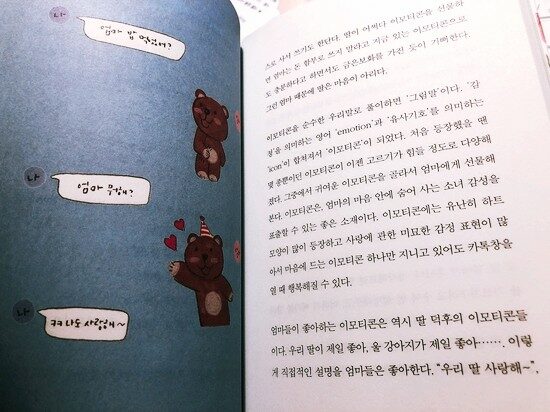 나
엄마 밥 먹었어?
나
엄마 뭐해?
나
ㅋㅋ 나도 사랑해~
스로 사서 쓰기도 한단다. 딸이 어쩌다 이모티콘을 선물하
면 엄마는 돈 함부로 쓰지 말라고 지금 있는 이모티콘으로
도 충분하다고 하면서도 금은보화를 가진 듯이 기뻐한다.
그런 엄마 때문에 딸은 마음이 아리다.
이모티콘을 순수한 우리말로 풀어하면 '그림말'이다. '감
정'을 의미하는 영어 'emotion'과 '유사기호'를 의미하는
'icon'이 합쳐져서 '이모티콘'이 되었다. 처음 등장했을 땐
몇 종뿐이던 이모티콘이 이젠 고르기가 힘들 정도로 다양해
졌다. 그중에서 귀여운 이모티콘을 골라서 엄마에게 선물해
본다. 이모티콘은, 엄마의 마음 안에 숨어 사는 소녀 감성을
표출할 수 있는 좋은 소재이다. 이모티콘에는 유난히 하트
모양이 많이 등장하고 사랑에 관한 미묘한 감정 표현이 많
아서 마음에 드는 이모티콘 하나만 지니고 있어도 카톡창을
열 때 행복해질 수 있다.
엄마들이 좋아하는 이모티콘은 역시 딸 덕후의 이모티콘들
이다. 우리 딸이 제일 좋아, 울 강아지가 제일 좋아……. 이렇
게 직접적인 설명을 엄마들은 좋아한다. "우리 딸 사랑해~",